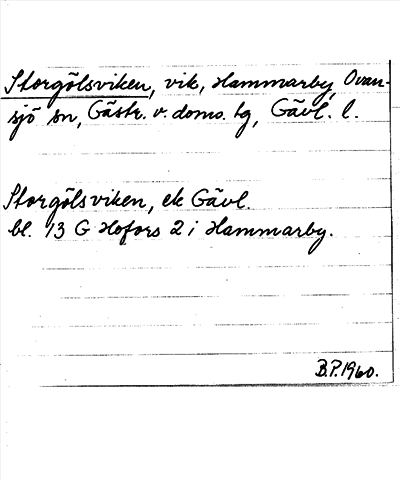 Storgölsviken, vik, Hammarby, Ovan-
sjö sn, Gästr. v. doms. tg, Gävl. l.
Storgölsviken, ek Gävl.
bl. 13 G Hofors 2 i Hammarby.
B.P. 1960.